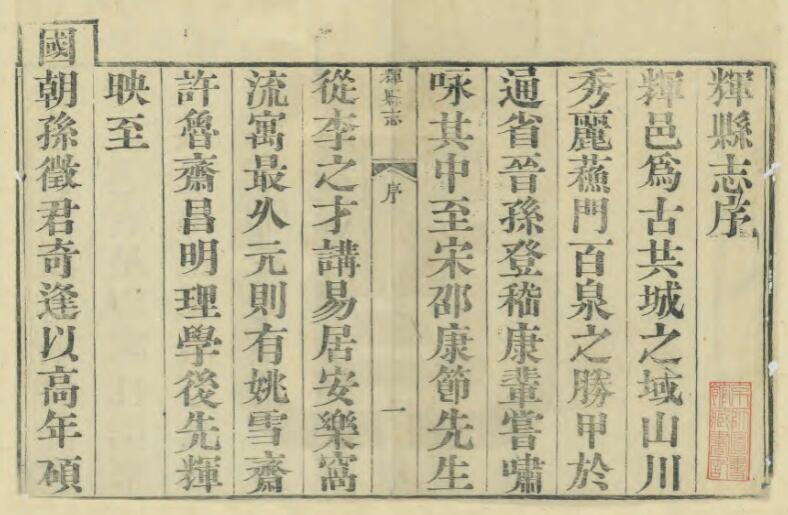 輝縣志序
輝邑爲古共城之域山川
秀麗蘇門百泉之勝甲於
通省晉孫登嵇康輩嘗嘯
咏其中至宋邵康節先生
輝縣志
序
一
從李之才講易居安樂窩
流寓最久元則有姚雪齋
許魯齋昌明理學後先輝
映至
國朝孫徵君奇逢以高年碩